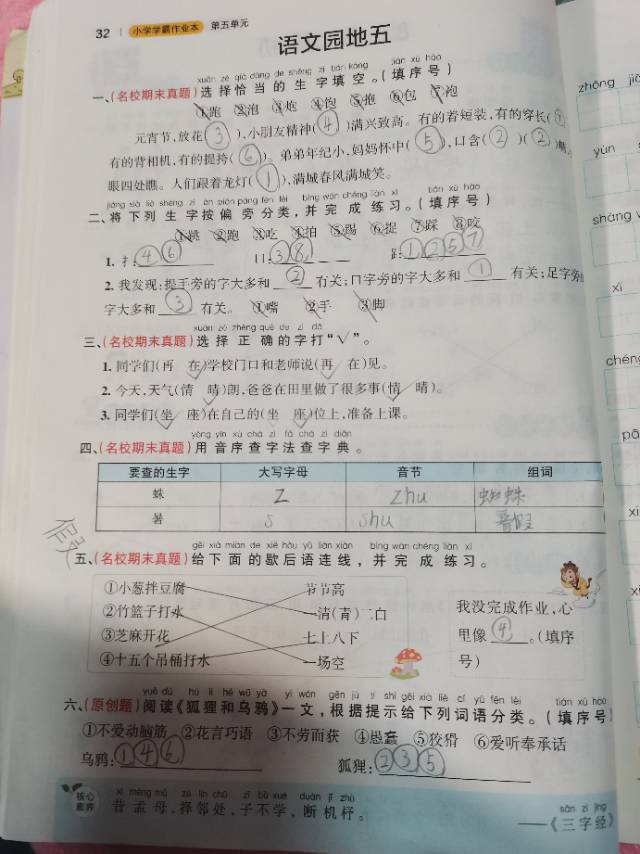 32 | 小学学霸作业本 第五单元
语文园地五
xuǎn zé qià dàng de shēng zì tián kòng tián xù hào
一、(名校期末真题)选择恰当的生字填空。(填序号)
①跑 ②泡 ③炮 ④饱 ⑤抱 ⑥包 ⑦袍
元宵节,放花(3),小朋友精神(4)满兴致高。有的着短装,有的穿长(
有的背相机,有的提挎(6)。弟弟年纪小,妈妈怀中(5),口含(2)(2)
眼四处瞧。人们跟着龙灯(1),满城春风满城笑。
二、将下列生字按偏旁分类,并完成练习。(填序号)
①跳 ②跑 ③吃 ④拍 ⑤踢 ⑥捉 ⑦踩 ⑧咬
1. 扌:④⑥ 口:③⑧ ⻊:①②⑤⑦
2. 我发现:提手旁的字大多和②有关;口字旁的字大多和①有关;足字旁
字大多和③有关。 ①嘴 ②手 ③脚
xuǎn zé zhèng què de zì dǎ
三、(名校期末真题)选择正确的字打“√”。
1. 同学们(再 在)学校门口和老师说(再 在)见。
2. 今天,天气(情 晴)朗,爸爸在田里做了很多事(情 晴)。
3. 同学们(坐 座)在自己的(坐 座)位上,准备上课。
yòng yīn xù chá zì fǎ chá zì diǎn
四、(名校期末真题)用音序查字法查字典。
要查的生字 大写字母 音节 组词
蛛 Z zhu 蜘蛛
暑 s shu 暑假
假
gěi xià miàn de xiē hòu yǔ lián xiàn bìng wán chéng liàn xí
五、(名校期末真题)给下面的歇后语连线,并完成练习。
①小葱拌豆腐 节节高
②竹篮子打水 一清(青)二白
③芝麻开花 七上八下
④十五个吊桶打水 一场空
我没完成作业,心
里像④。(填序
号)
六、(原创题)阅读《狐狸和乌鸦》一文,根据提示给下列词语分类。(填序号
①不爱动脑筋 ②花言巧语 ③不劳而获 ④愚蠢 ⑤狡猾 ⑥爱听奉承话
乌鸦:①④⑥ 狐狸:②③⑤
核心
素养
xī mèng mǔ zé lín chǔ zǐ bù xué duàn jī zhù
昔孟母,择邻处,子不学,断机杼。
sān zì jīng
——《三字经》
zhōng
yún
shàng
xí
chéng
xi